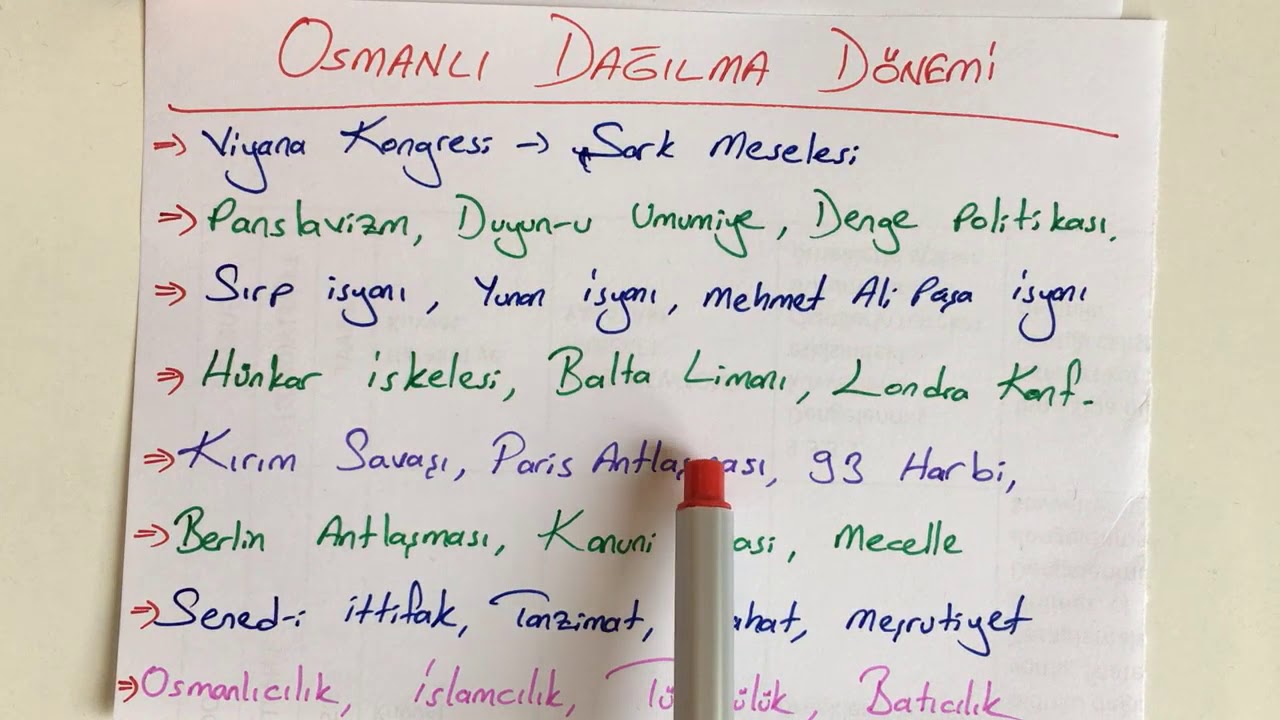 OSMANLI DAĞILMA DÖNEMİ
⇒ Viyana Kongresi → Şark Meselesi
⇒ Panslavizm, Duyun-u Umumiye, Denge Politikası.
⇒ Sırp isyanı, Yunan isyanı, Mehmet Ali Paşa isyanı
⇒ Hünkar iskelesi, Balta Limanı, Londra Konf.
⇒ Kırım Savaşı, Paris Antlaşması, 93 Harbi,
⇒ Berlin Antlaşması, Kanuni Mecelle
⇒ Sened-i ittifak, Tanzimat, Meşrutiyet
⇒ Osmanlıcılık, İslamcılık, Batıcılık